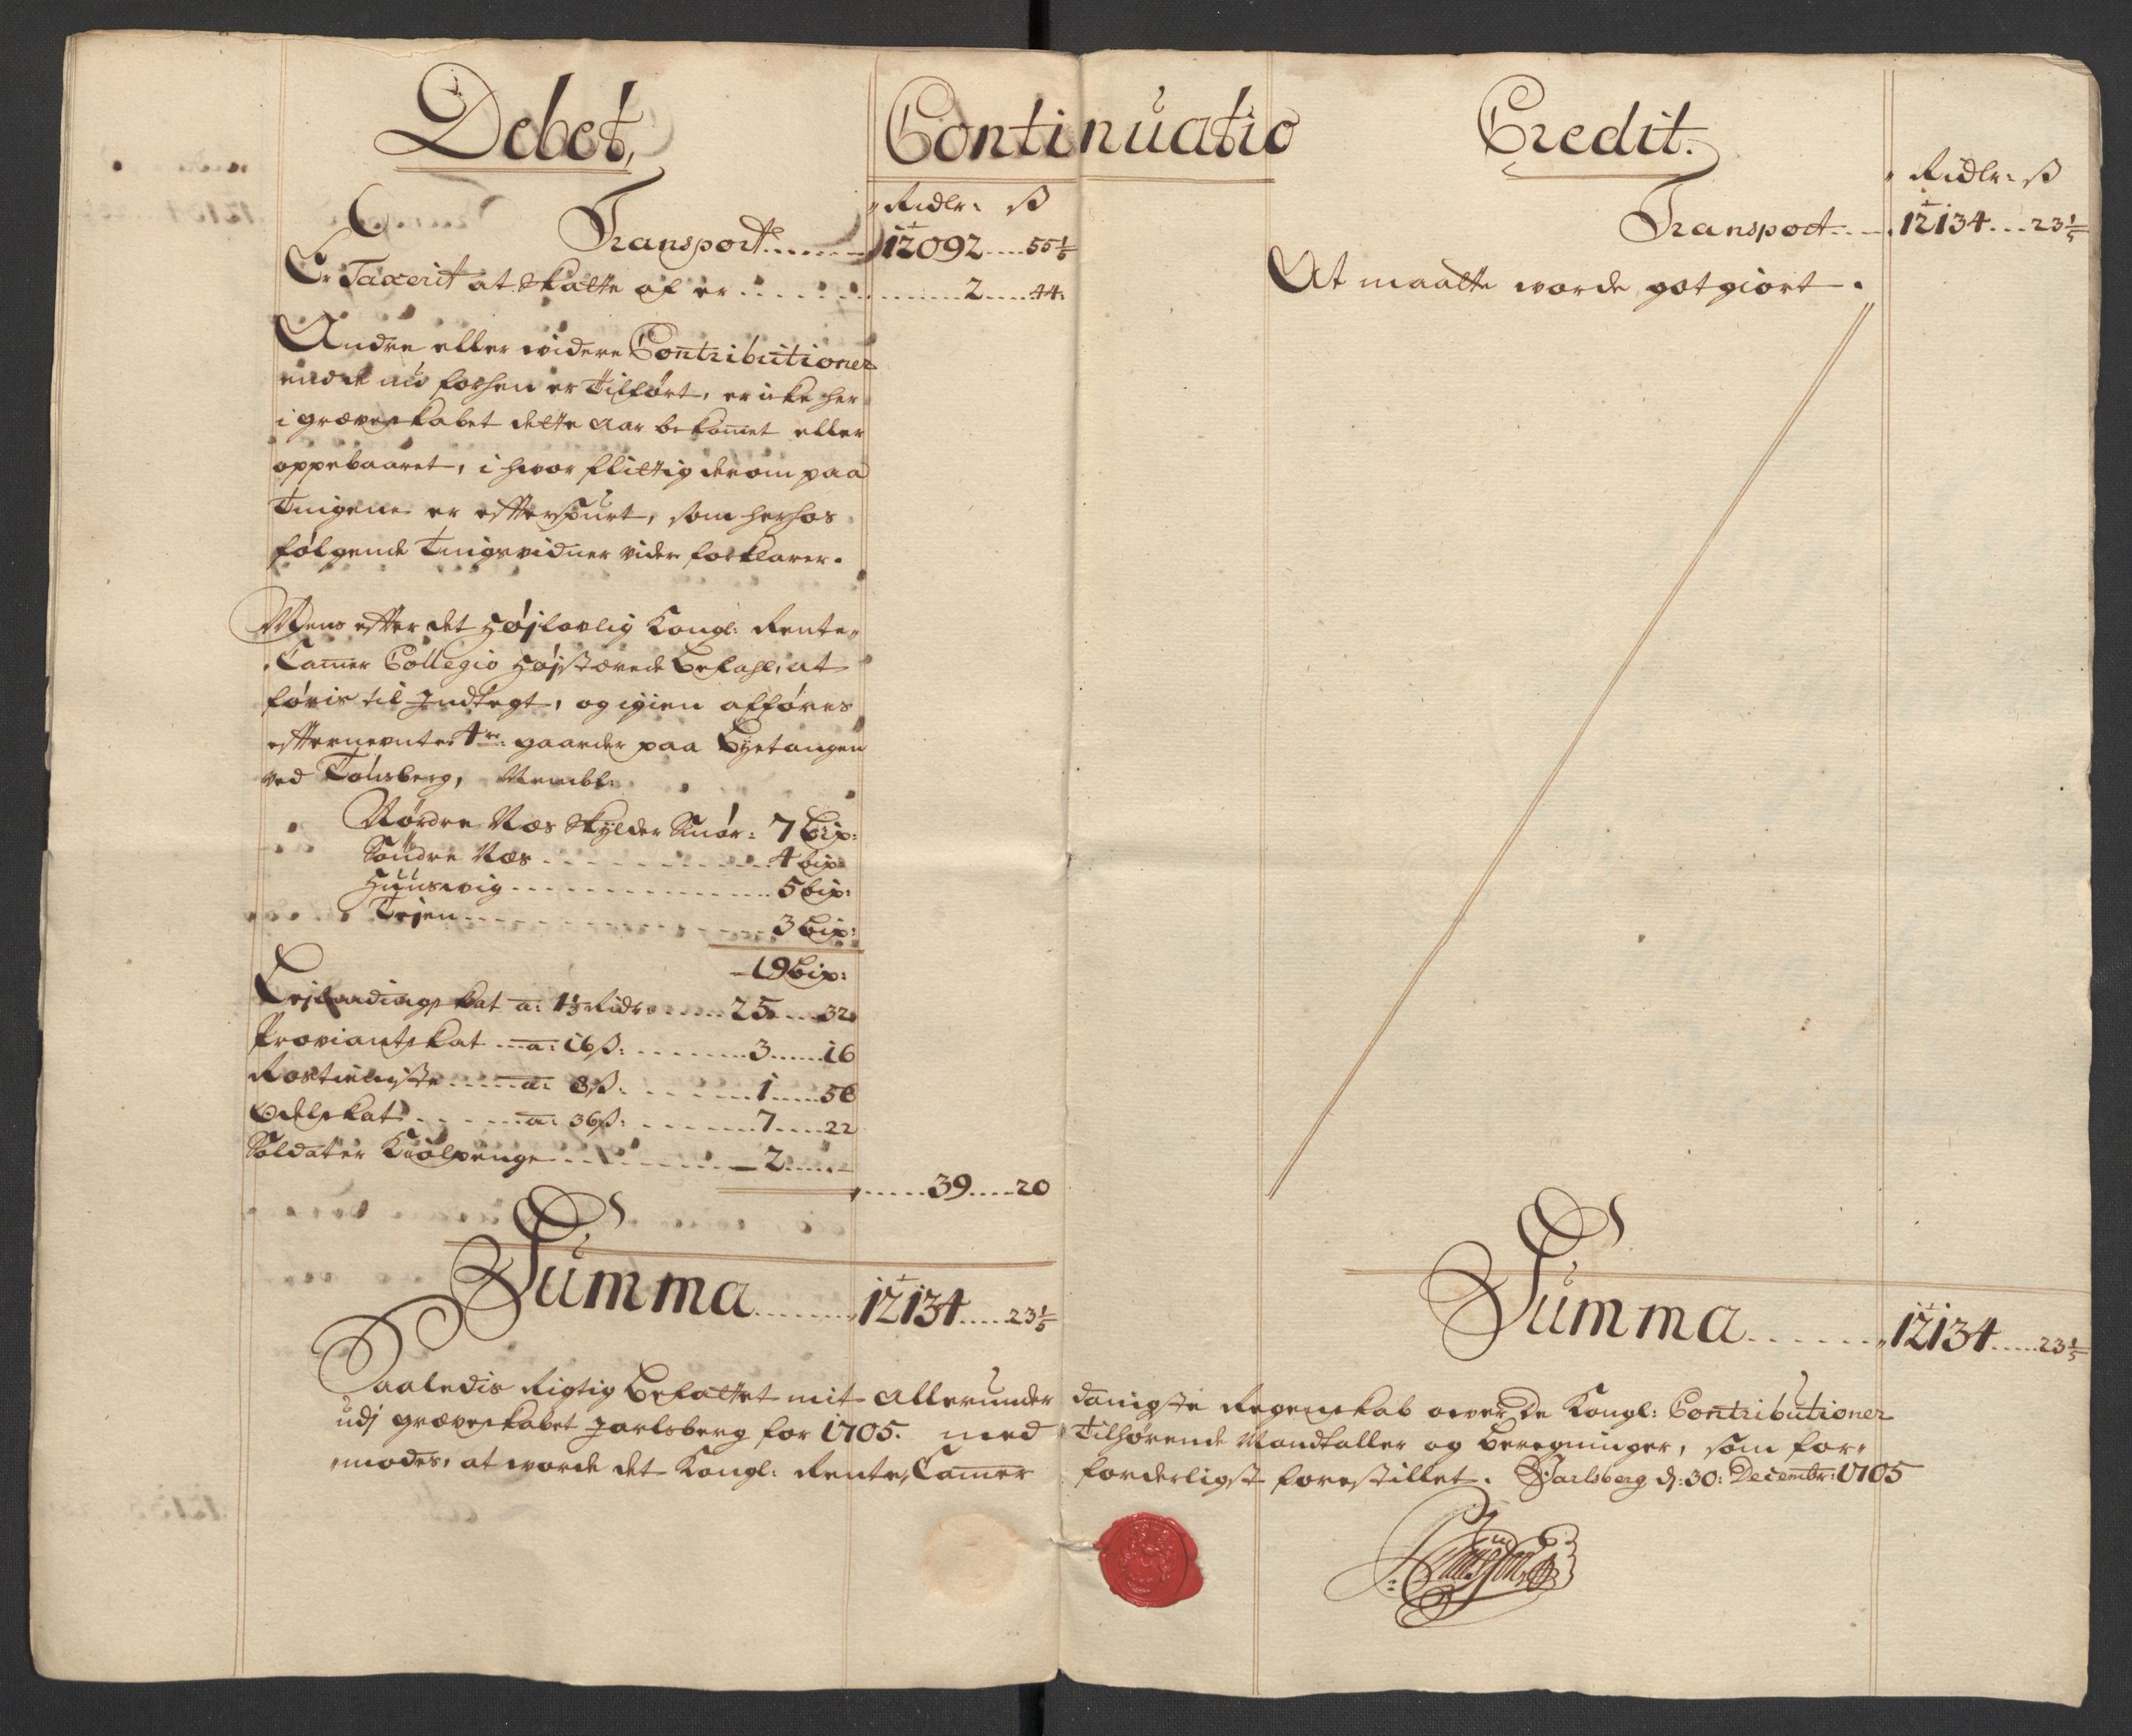 Debet,
Continuatio
Credit.
Ridlr: ß
Transport....... 12092....55 1/5
Er Taxerit at Skatte af er ............ 2....44:
Andre eller widere Contributioner
end de nu forhen er Tilført, er icke her
i græverskabet dette Aar bekomet eller
oppebaaret, i hvor flittig derom paa
Tingene er efterspurt, som herhos
følgende Tingsvidner vider forklarer.
Mens efter det Højlovlig Kongl: Rente„
Camer Collegio Højstærede Befahl, at
føris til Indtegt, og igien afføres
efternevnte 4re: gaarder paa Byetangen
ved Tønsberg, Nembl:
Nørdre Næs Skylder Smør: 7 bip:
Søndre Næs ............ 4 bip:
Huusvig ............ 5 bip:
Tejen ............ 3 bip:
19 bip:
Lejlendingskat a: 1 1/3 Ridr ...... 25....32
Proviantskat ... a: 16ß: ........ 3......16
Rostieniste ..... a: 8ß: ....... 1.....56
Odelskat ...... a: 36ß: ........ 7.....22
Soldater Kiolpenge ......... 2.....
......39....20
Summa ........ 12134.....23 1/5
Ridlr: ß
Transport .... 12134...23 1/5
At maatte worde gotgiort.
Summa ....... 12134.....23 1/5
Saaledis Rigtig Befattet mit allerunder danigste Regenskab ower de Kongl: Contributioner
udj græverskabet Jarlsberg for 1705. med Tilhørende Mandtaller og Beregninger, som for„
„modes, at worde det Kongl: Rente„Camer forderligst forestillet. Jarlsberg d: 30: Decembr: 1705